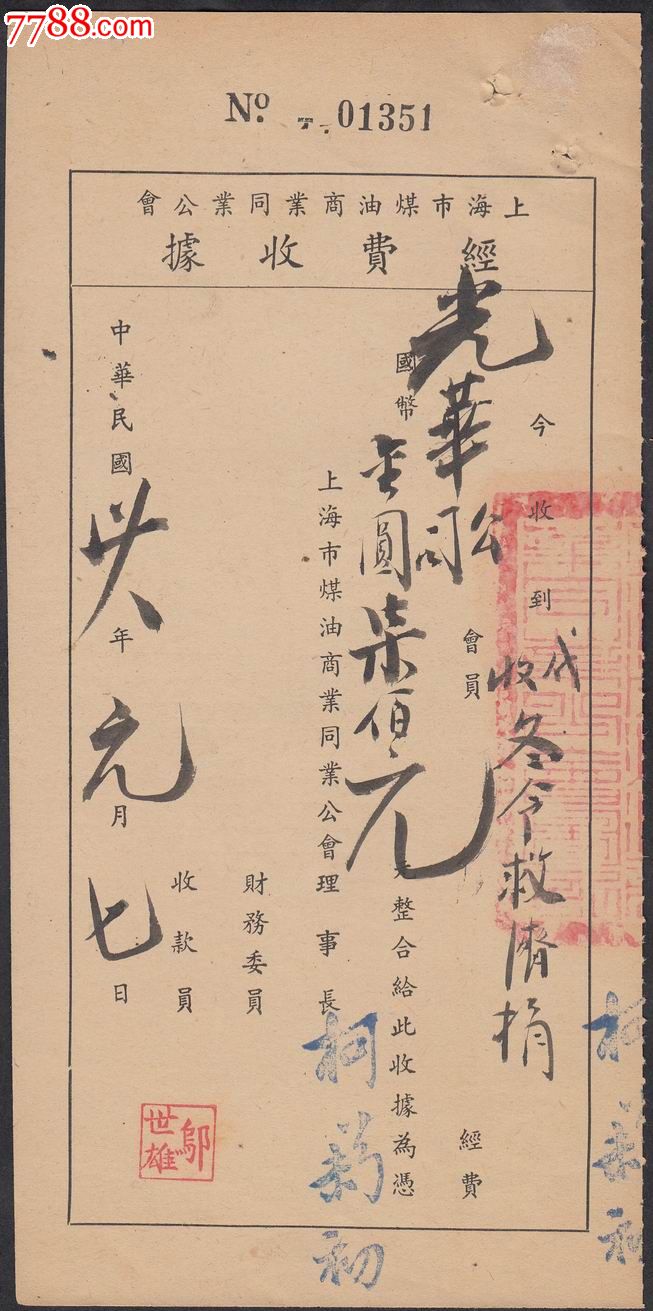 7788.com
No. 01351
上海市煤油商業同業公會
經費收據
今收到代收冬令救濟捐
光華公司會員經費
國幣金圓柒佰元整合給此收據為憑
上海市煤油商業同業公會理事長
財務委員
收款員
鄔世雄
中華民國卅八年元月七日